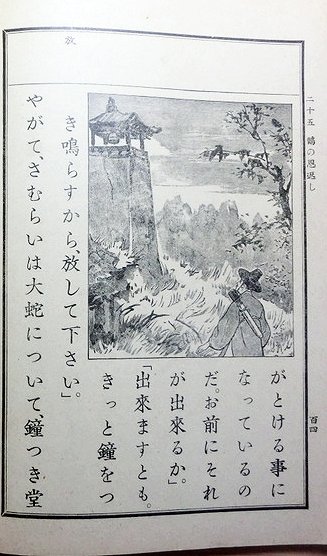 二十五 鵲の恩返し
百四
がとける事に
なっているの
だ。お前にそれ
が出來るか。」
「出來ますとも。
きっと鐘をつ
き鳴らすから、放して下さい。」
やがて、さむらいは大蛇について、鐘つき堂
放